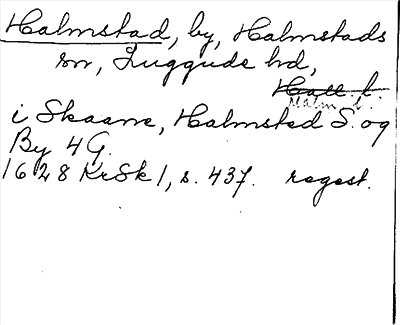 Halmstad, by, Halmstads
sn, Luggude hd,
Hall. l.
Malm. l.
i Skaane, Halmsted S. og
By 4 G.
1628 KrSk 1, s. 437. regest.